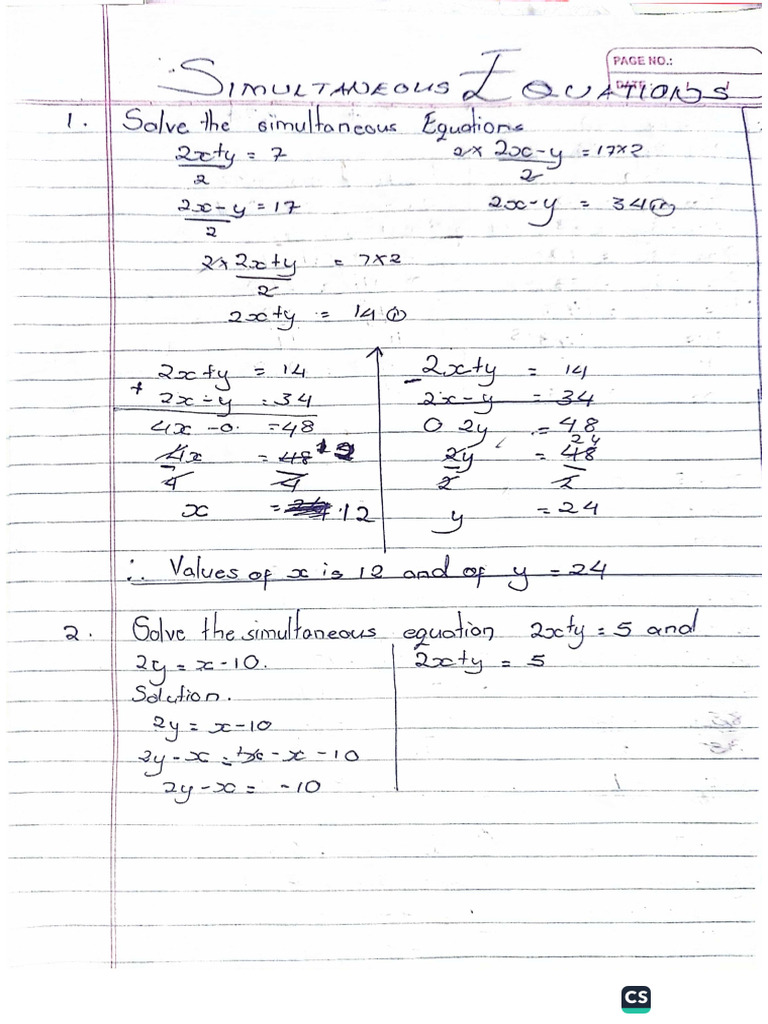 PAGE NO.:
DATE
SIMULTANEOUS EQUATIONS
1. Solve the simultaneous Equations
2x+y = 7
2
2x-y = 17
2
2 x 2x+y = 7x2
2
2x+y = 14 (i)
2 x 2x-y = 17x2
2
2x-y = 34 (ii)
2x+y = 14
+ 2x-y = 34
4x - 0 = 48
4x = 48 12
4 4
x = 12
- 2x+y = 14
2x-y = 34
0 2y = 48
24
2y = 48
2 2
y = 24
∴ Values of x is 12 and of y = 24
2. Solve the simultaneous equation 2x+y = 5 and
2y = x-10.
Solution.
2y = x-10
2y-x = x-x-10
2y-x = -10
2x+y = 5
CS